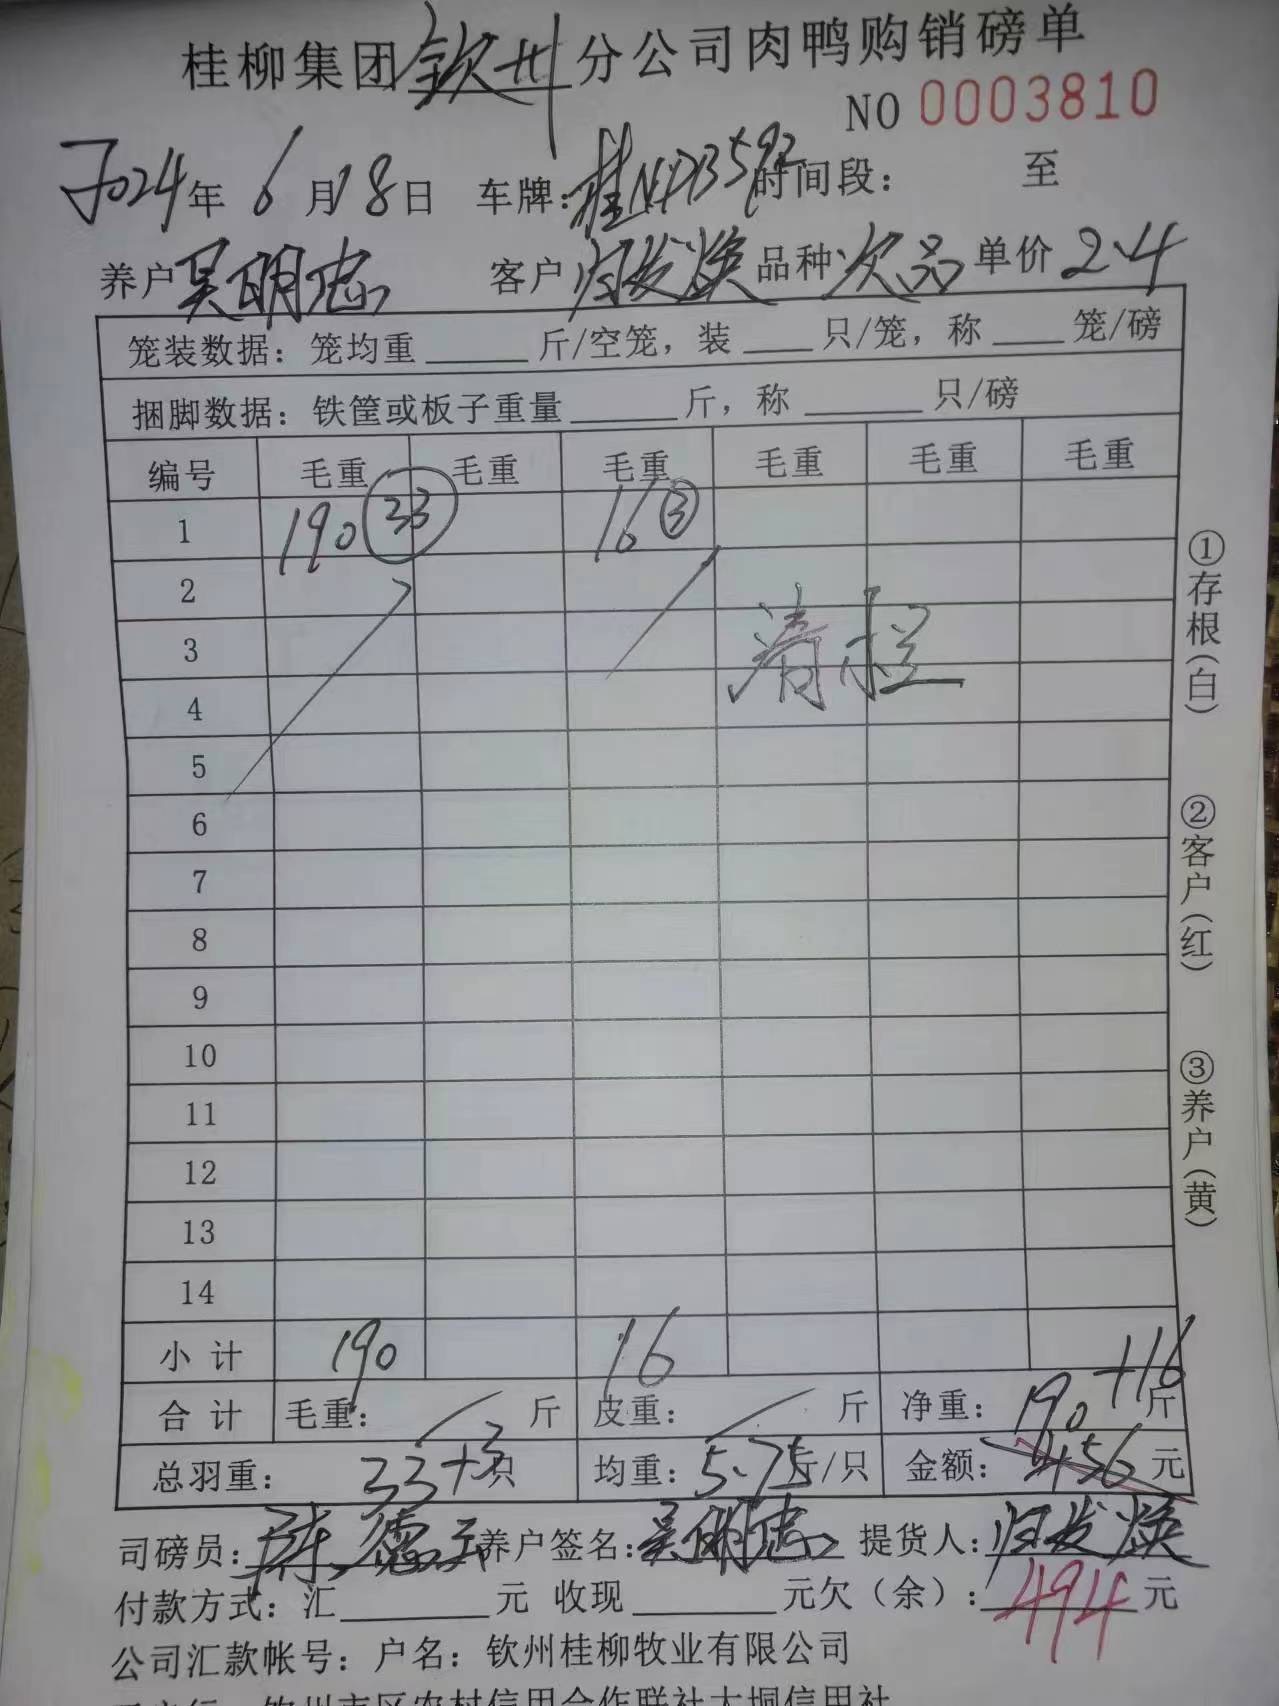 桂柳集团钦州分公司肉鸭购销磅单
NO 0003810
2024年6月18日 车牌:桂 时间段: 至
养户吴明忠 客户归发焕 品种次品 单价2.4
笼装数据: 笼均重______斤/空笼, 装____只/笼, 称____笼/磅
捆脚数据: 铁筐或板子重量______斤, 称______只/磅
编号 毛重 毛重 毛重 毛重 毛重 毛重
1 190 33 16 3
2
3 清栏
4
5
6
7
8
9
10
11
12
13
14
小计 190 16
合计 毛重: 斤 皮重: 斤 净重: 190+16斤
总羽重: 33+3只 均重: 5.75斤/只 金额: 456元
司磅员: 陈德 养户签名: 吴明忠 提货人: 归发焕
付款方式: 汇______元 收现______元欠(余): 494元
公司汇款帐号: 户名: 钦州桂柳牧业有限公司
钦州市区农村信用合作联社大垌信用社
①存根(白)
②客户(红)
③养户(黄)